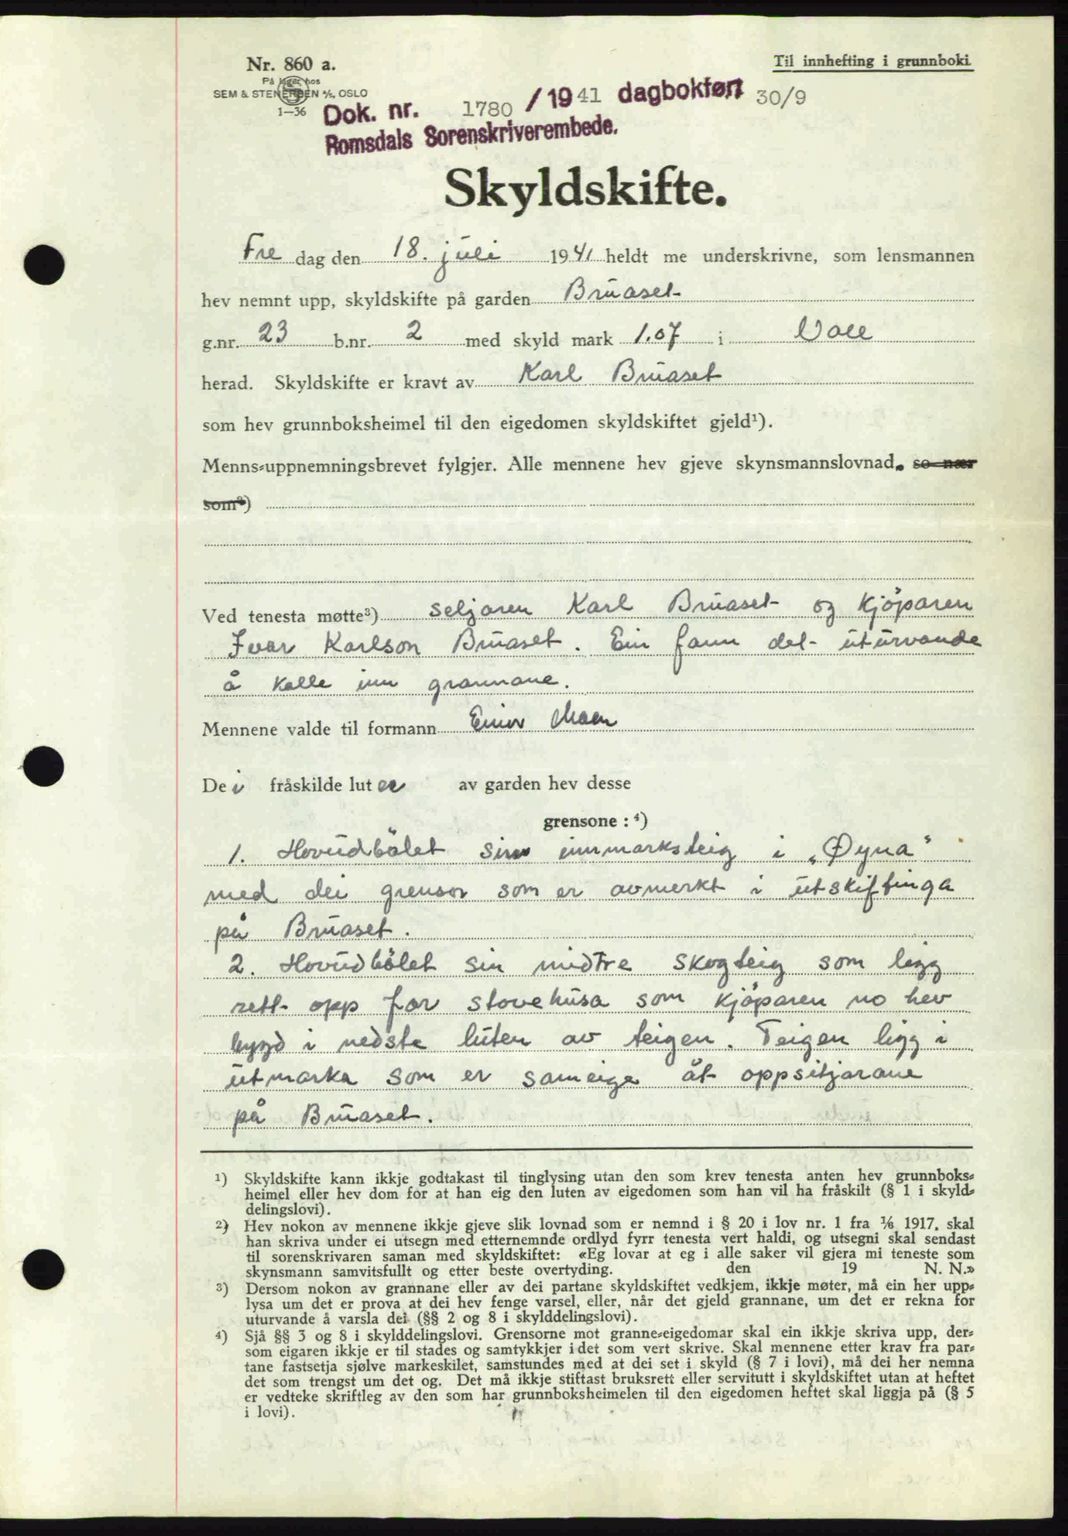 Nr. 860 a.
Til innhefting i grunnboki
På lager hos
SEM & STENERSEN A/S, OSLO
1—36
Dok. nr. 1780 / 1941 dagbokført 30/9
Romsdals Sorenskriverembede.
Skyldskifte.
Fre dag den 18. juli 1941 heldt me underskrivne, som lensmannen
hev nemnt upp, skyldskifte på garden Brúaset
g.nr. 23 b.nr. 2 med skyld mark 1.07 i Voll
herad. Skyldskifte er kravt av Karl Brúaset
som hev grunnboksheimel til den eigedomen skyldskiftet gjeld¹).
Menns-uppnemningsbrevet fylgjer. Alle mennene hev gjeve skynsmannslovnad. so nær
som²)
Ved tenesta møtte³) seljaren Karl Brúaset og kjöparen
Ivar Karlson Brúaset. Ein fann det úturvande
å kalle inn grannane.
Mennene valde til formann Einar Moen
Dei fråskilde luter av garden hev desse
grensone : ⁴)
1. Hovúdbölet sin innmarksteig i „Øyna"
med dei grensor som er avmerkt i útskiftinga
på Brúaset.
2. Hovúdbölet sin midtre skogteig som ligg
rett opp for stovehúsa som kjöparen no hev
bygd i nedste lúten av teigen. Teigen ligg i
útmarka som er sameige åt oppsitjarane
på Brúaset.
¹) Skyldskifte kann ikkje godtakast til tinglysing utan den som krev tenesta anten hev grunnboks-
heimel eller hev dom for at han eig den luten av eigedomen som han vil ha fråskilt (§ 1 i skyld-
delingslovi).
²) Hev nokon av mennene ikkje gjeve slik lovnad som er nemnd i § 20 i lov nr. 1 fra 1/6 1917, skal
han skriva under ei utsegn med etternemnde ordlyd fyrr tenesta vert haldi, og utsegni skal sendast
til sorenskrivaren saman med skyldskiftet: «Eg lovar at eg i alle saker vil gjera mi teneste som
skynsmann samvitsfullt og etter beste overtyding. den 19 N. N.»
³) Dersom nokon av grannane eller av dei partane skyldskiftet vedkjem, ikkje møter, må ein her upp-
lysa um det er prova at dei hev fenge varsel, eller, når det gjeld grannane, um det er rekna for
uturvande å varsla dei (§§ 2 og 8 i skylddelingslovi).
⁴) Sjå §§ 3 og 8 i skylddelingslovi. Grensorne mot granne-eigedomar skal ein ikkje skriva upp, der-
som eigaren ikkje er til stades og samtykkjer i det som vert skrive. Skal mennene etter krav fra par-
tane fastsetja sjølve markeskilet, samstundes med at dei set i skyld (§ 7 i lovi), må dei her nemna
det som trengst um det og. Det må ikkje stiftast bruksrett eller servitutt i skyldskiftet utan at heftet
er vedteke skriftleg av den som har grunnboksheimelen til den eigedomen heftet skal liggja på (§ 5
i lovi).